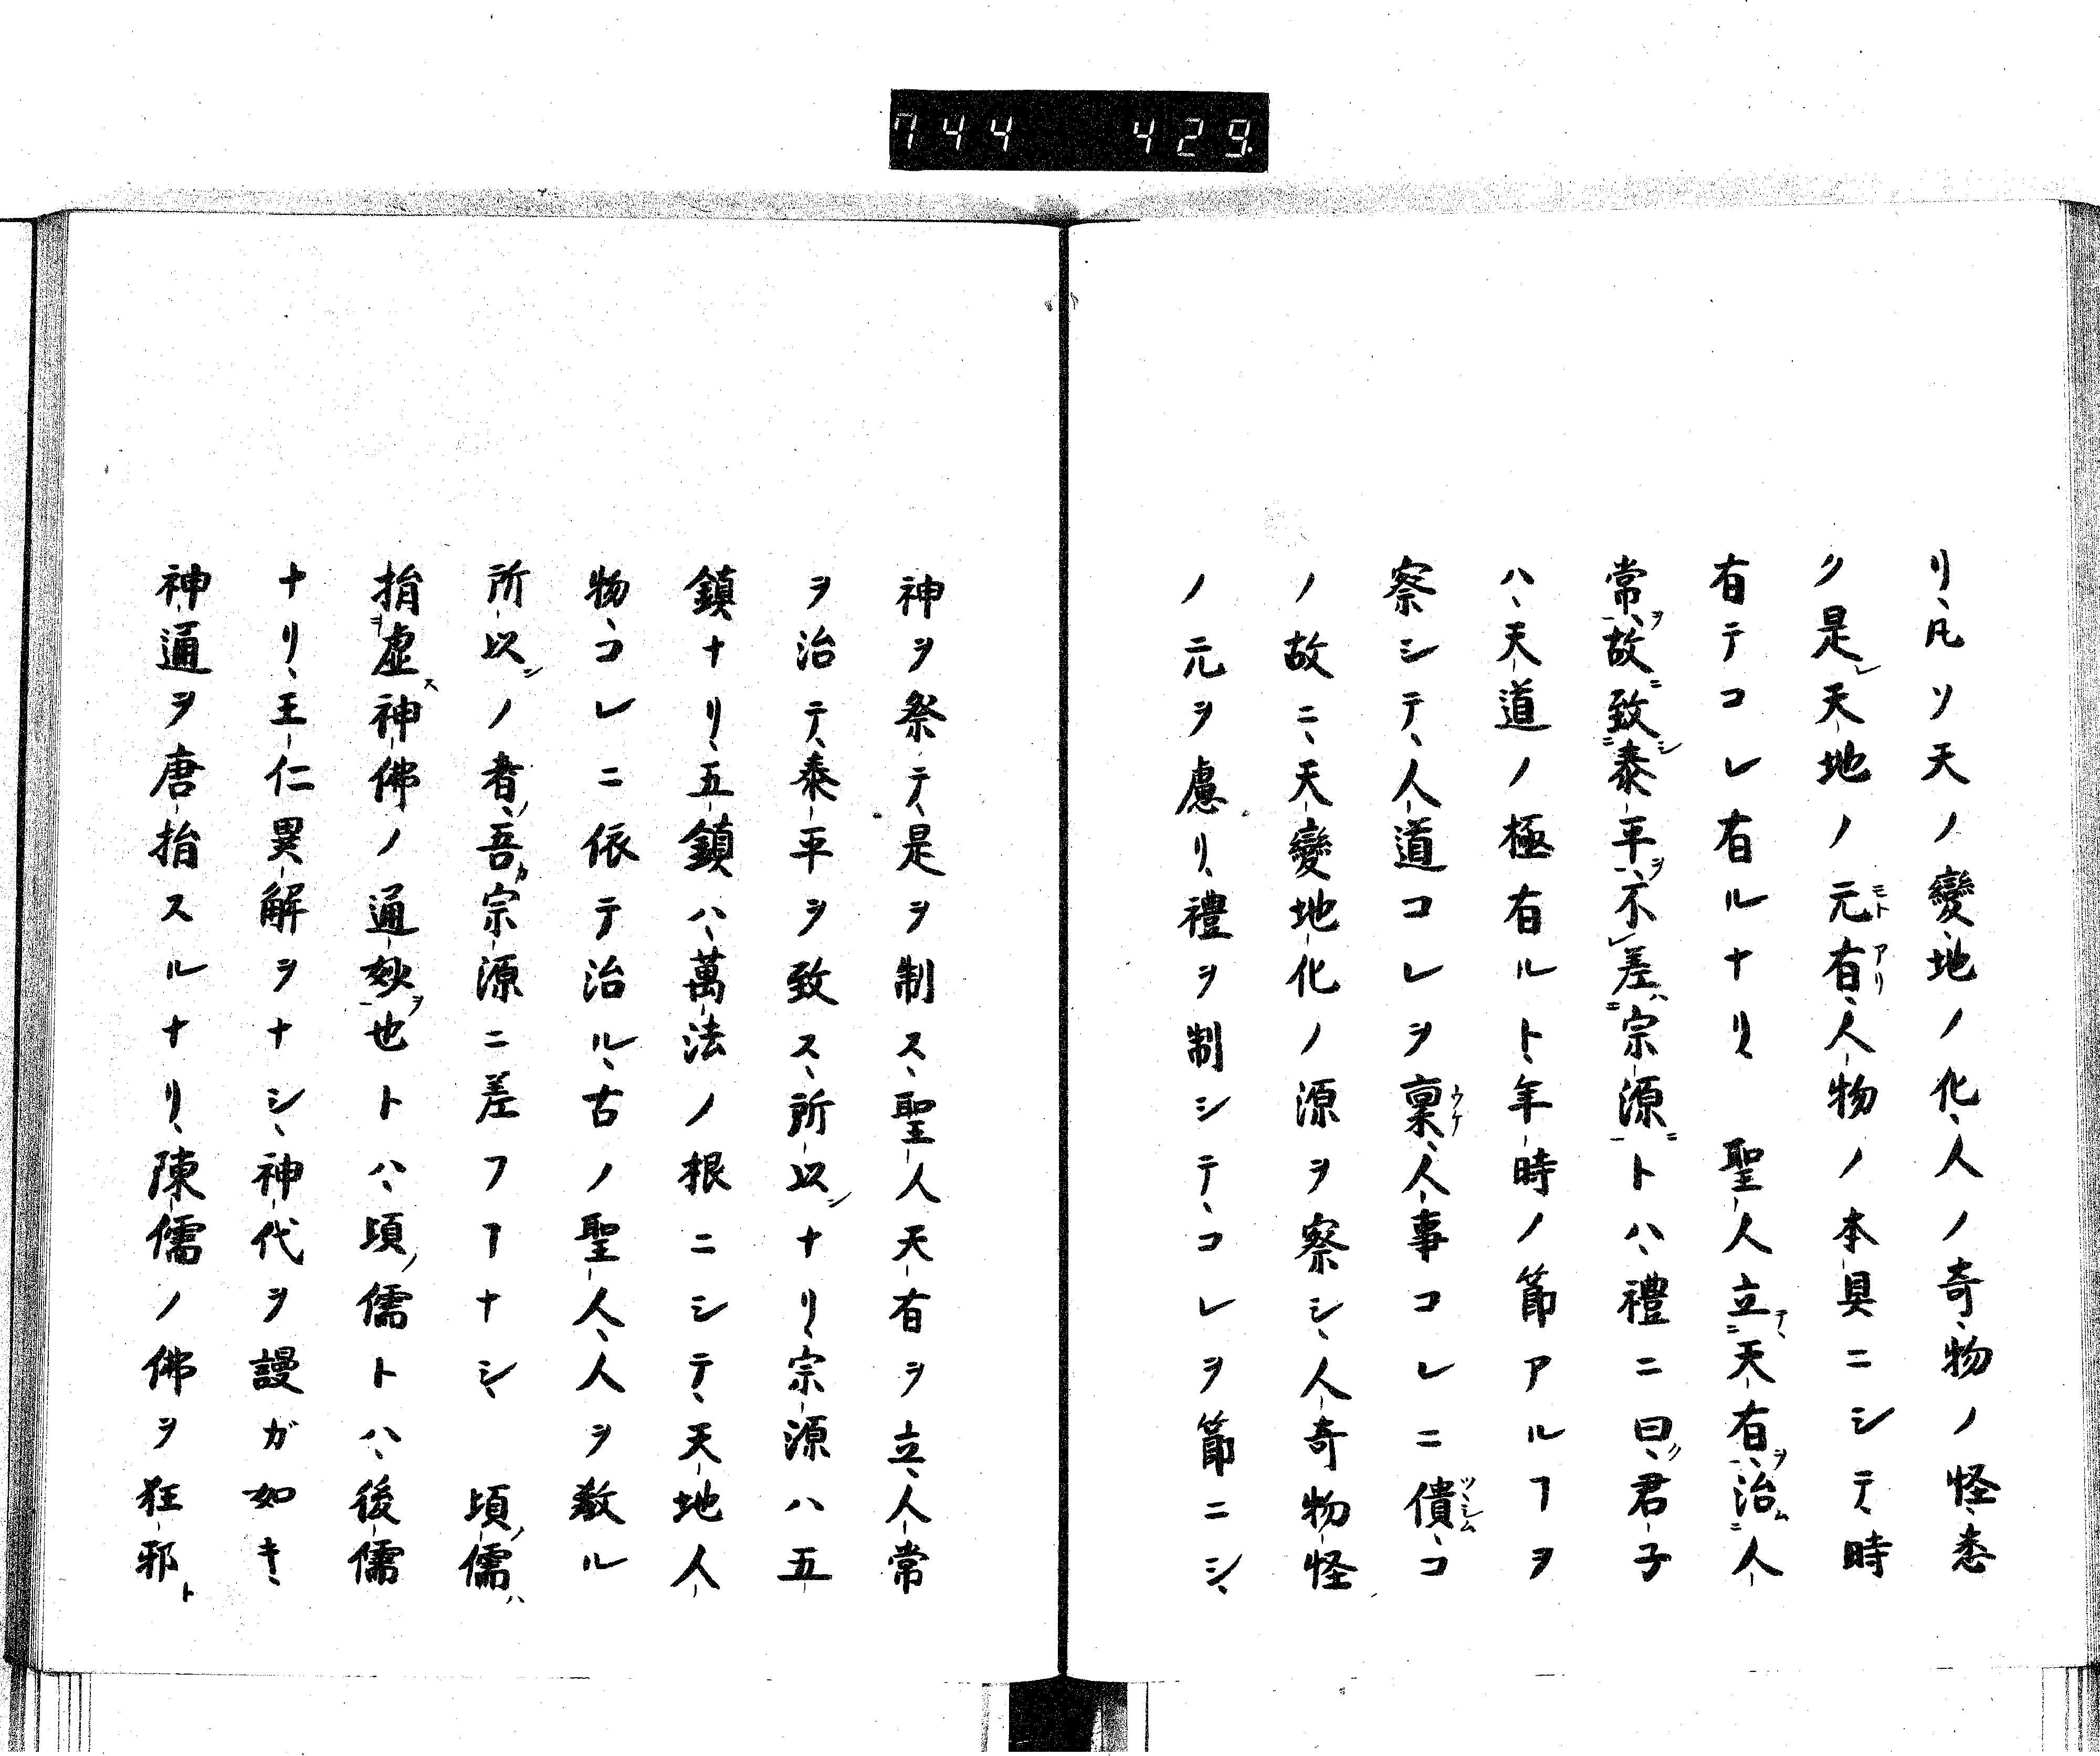 744 429.
リ、凡ソ天ノ變、地ノ化、人ノ奇、物ノ怪、悉
ク是レ天地ノ元有、人物ノ本具ニシテ、時
有テコレ有ルナリ、 聖人立天有、治人
常、故致泰平、不差宗源トハ、禮ニ曰、君子
ハ、天道ノ極有ルト、年時ノ節アルヿヲ
察シテ、人道コレヲ稟、人事コレニ債、コ
ノ故ニ、天變地化ノ源ヲ察シ、人奇物怪
ノ元ヲ慮リ、禮ヲ制シテ、コレヲ節ニシ、
神ヲ祭テ、是ヲ制ス、聖人天有ヲ立、人常
ヲ治テ、泰平ヲ致ス、所以ナリ、宗源ハ五
鎮ナリ、五鎮ハ、萬法ノ根ニシテ、天地人
物、コレニ依テ治ル、古ノ聖人、人ヲ教ル
所以ノ者、吾宗源ニ差フヿナシ、 頃儒
掯虚神佛ノ通妙也トハ、頃儒トハ、後儒
ナリ、王仁異解ヲナシ、神代ヲ謾ガ如キ、
神通ヲ唐掯スルナリ、陳儒ノ佛ヲ狂邪ト